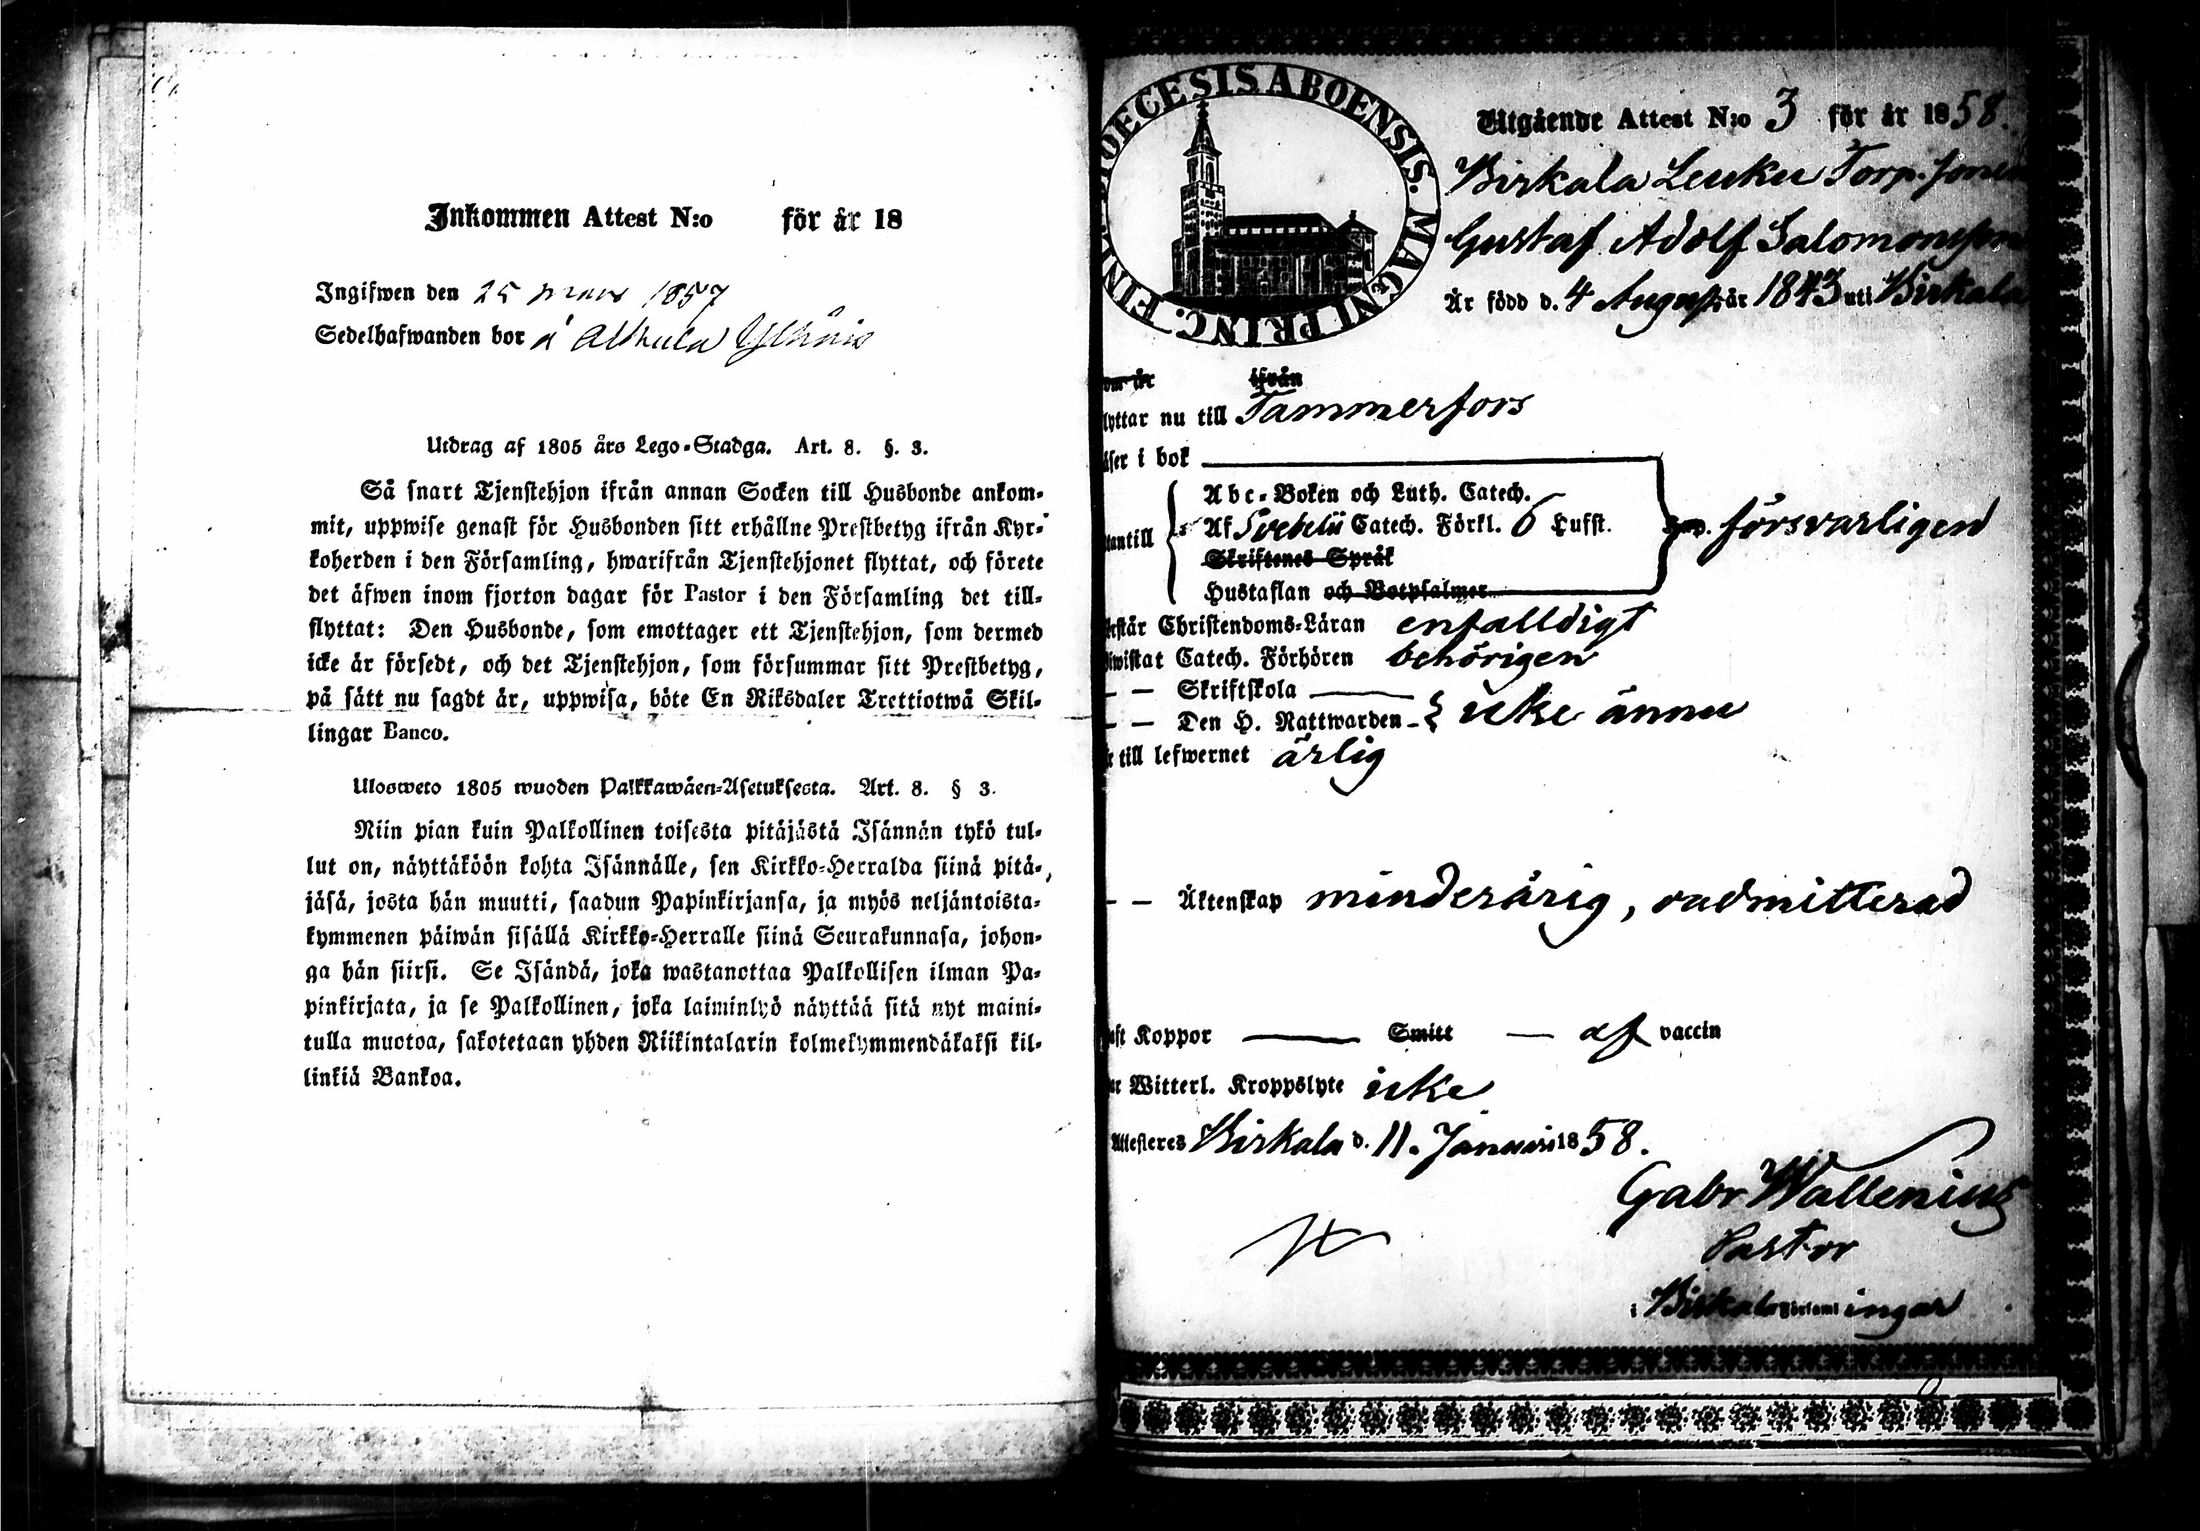 Inkommen Attest N:o för år 18
Ingifwen den 25 mars 1857
Sedelhafwanden bor å
Utdrag af 1805 års Lego-Stadga. Art. 8. §. 3.
Så snart Tjenstehjon ifrån annan Socken till Husbonde ankom-
mit, uppwise genast för Husbonden sitt erhållne Prestbetyg ifrån Kyr-
koherden i den Församling, hwarifrån Tjenstehjonet flyttat, och förete
det äfwen inom fjorton dagar för Pastor i den Församling det till-
flyttat: Den Husbonde, som emottager ett Tjenstehjon, som dermed
icke är försedt, och det Tjenstehjon, som försummar sitt Prestbetyg,
på sätt nu sagdt är, uppwisa, böte En Riksdaler Trettiotwå Skil-
lingar Banco.
Ulosweto 1805 wuoden Palkkawäen-Asetuksesta. Art. 8. § 3.
Niin pian kuin Palkollinen toisesta pitäjästä Isännän tykö tul-
lut on, näyttäköön kohta Isännälle, sen Kirkko-Herralda siinä pitä-
jäsä, josta hän muutti, saadun Papinkirjansa, ja myös neljäntoista-
kymmenen päiwän sisällä Kirkko-Herralle siinä Seurakunnasa, johon-
ga hän siirsi. Se Isändä, joka wastanottaa Palkollisen ilman Pa-
pinkirjata, ja se Palkollinen, joka laiminlyö näyttää sitä nyt maini-
tulla muotoa, sakotetaan yhden Riikintalarin kolmekymmendäkaksi kil-
linkiä Bankoa.
DIOECESIS ABOENSIS. MAGNI PRINC. FINL
Utgående Attest N:o 3 för år 1858.
Birkala Leuku Torp. Sonen
Gustaf Adolf Salomonsson
Är född d. 4 August. år 1843 uti Birkala
om år ifrån
lyttar nu till Tammerfors
äser i bok
Abc-Boken och Luth. Catech.
utantill Af Svebelii Catech. Förkl. 6 Hufst. försvarligen
Skriftenes Språk
Hustaflan och Botpsalmer
rstår Christendoms-Läran enfalldigt
iwistat Catech. Förhören behörigen
— — Skriftskola
— — Den H. Nattwarden icke ännu
r till lefwernet ärlig
— — Äktenskap minderårig, oadmitterad
aft Koppor — Smitt — af vaccin
ar Witterl. Kroppslyte icke
Attesteres Birkala d. 11. Januari 1858.
Gabr Wallenius
Pastor
i Birkala Församlingar